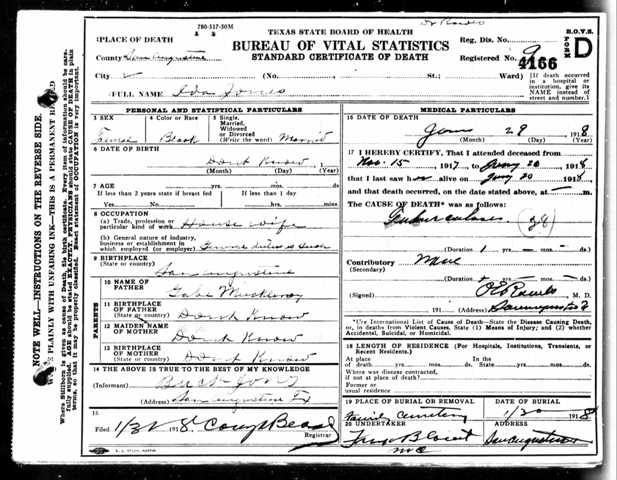 780-317-50M
TEXAS STATE BOARD OF HEALTH
BUREAU OF VITAL STATISTICS
STANDARD CERTIFICATE OF DEATH
R.O.V.S.
FORM D
Reg. Dis. No.
Registered No. 9
4166
1 PLACE OF DEATH
County San Augustine
City (No. St.; Ward)
[If death occurred in a hospital or institution, give its NAME instead of street and number.]
FULL NAME Ida Jones
PERSONAL AND STATISTICAL PARTICULARS
3 SEX
Female
4 Color or Race
Black
5 Single, Married, Widowed or Divorced (Write the word) Married
6 DATE OF BIRTH
Dont Know
(Month) (Day) (Year)
7 AGE yrs. mos. ds.
If less than 2 years state if breast fed If less than 1 day
8 OCCUPATION
(a) Trade, profession or particular kind of work House wife
(b) General nature of industry, business or establishment in which employed (or employer)
9 BIRTHPLACE
(State or country) San Augustine
PARENTS
10 NAME OF FATHER Gabe
11 BIRTHPLACE OF FATHER
(State or country) Dont Know
12 MAIDEN NAME OF MOTHER Dont Know
13 BIRTHPLACE OF MOTHER
(State or country) Dont Know
14 THE ABOVE IS TRUE TO THE BEST OF MY KNOWLEDGE
(Informant) Buck Jones
(Address) San Augustine Tx
15
Filed 1/31 1918
Registrar
MEDICAL PARTICULARS
16 DATE OF DEATH
Jany 29, 1918
(Month) (Day) (Year)
17 I HEREBY CERTIFY, That I attended deceased from
Nov. 15 1917, to Jany 20, 1918
that I last saw h alive on Jany 20 1918
and that death occurred, on the date stated above, at m.
The CAUSE OF DEATH* was as follows:
Tuberculosis (28)
(Duration 1 yrs. mos. ds.
Contributory None
(Secondary)
(Duration yrs. mos. ds.
(Signed) M. D.
191 (Address)
*Use International List of Cause of Death—State the Disease Causing Death, or, in deaths from Violent Causes, State (1) Means of Injury; and (2) whether Accidental, Suicidal, or Homicidal.
18 LENGTH OF RESIDENCE (For Hospitals, Institutions, Transients, or Recent Residents.)
At place of death yrs. mos. ds. In the State yrs. mos. ds.
Where was disease contracted, if not at place of death?
Former or usual residence
19 PLACE OF BURIAL OR REMOVAL
Family Cemetery
DATE OF BURIAL
1/30 1918
20 UNDERTAKER
ADDRESS
San Augustine
NOTE WELL—INSTRUCTIONS ON THE REVERSE SIDE.
PLAINLY WITH UNFADING INK—THIS IS A PERMANENT RECORD